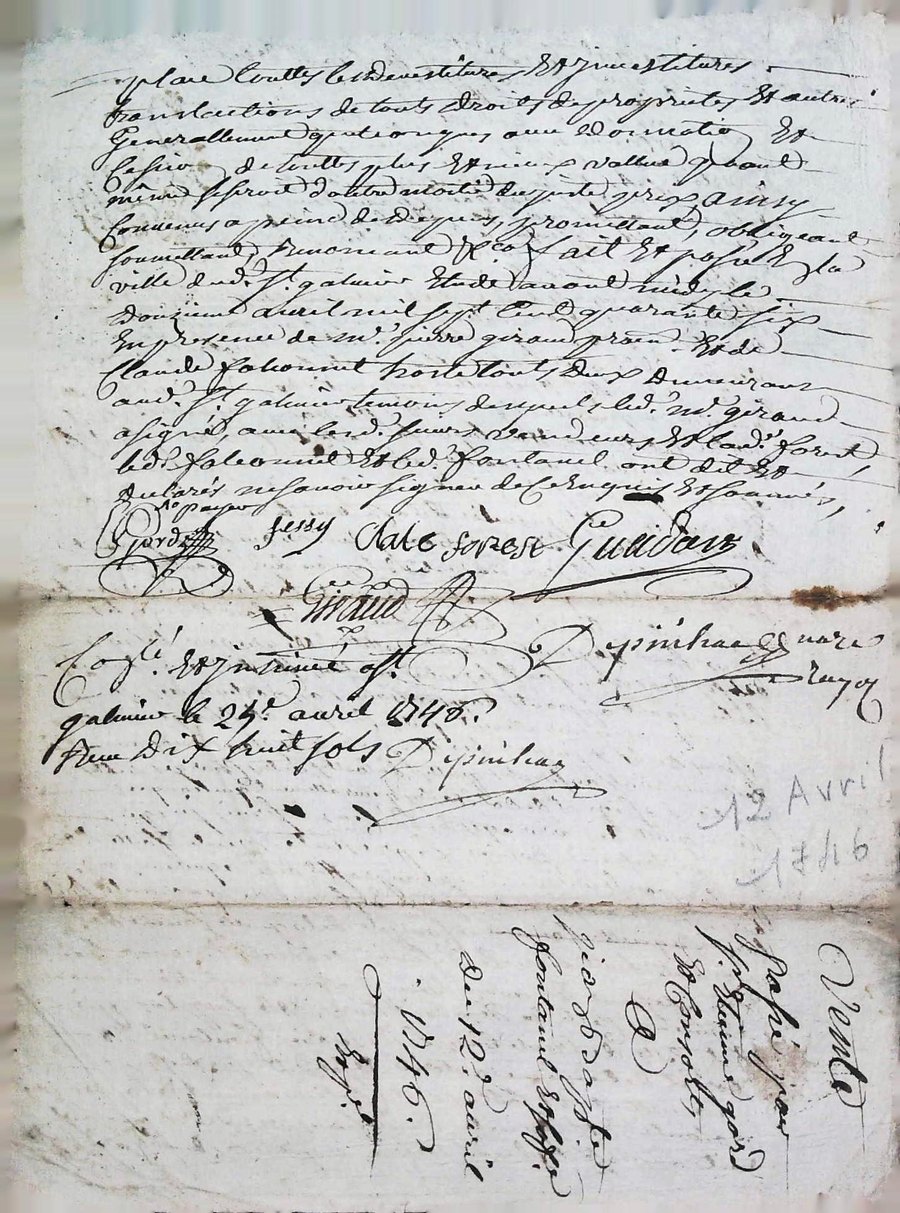 place touttes les devestitures Et jnvestitures
translactions de touts droits de proprietes Et autres
Generallement quelconques avec donnation Et
Cession de touttes plus Et mieux vallue quand
même ce seroit d'outre moitié du juste prix ainsy
Convenus a peine de depens, promettant, obligeant
soumettant, Renonceant &ca fait Et passé En la
ville dud. St. galmier Etude avant midy le
douzieme avril mil sept Cent quarante six
En presence de mr. pierre giraud Et de
Claude falconnet hoste touts deux demeurant
aud. St. galmier temoins desquels led. mr. giraud
a signé, avec lesd. sieurs vendeurs Et lad. forest,
led. falconnet Et led. fontanel ont dit Et
declarés ne sçavoir signer de Ce Enquis Et sommés,
Gord fessy Clate forest Gueidan
Giraud
Depinhac nore
Royal
Conlé Et jnsinué a St.
galmier le 24e avril 1746.
Reçu dix huit sols Depinhac
12 Avril
1746
Vente
passé par
sr. Etienne gord
Et Consorts,
A
pierre
fontanel
Du 12e avril
1746.
Expé.